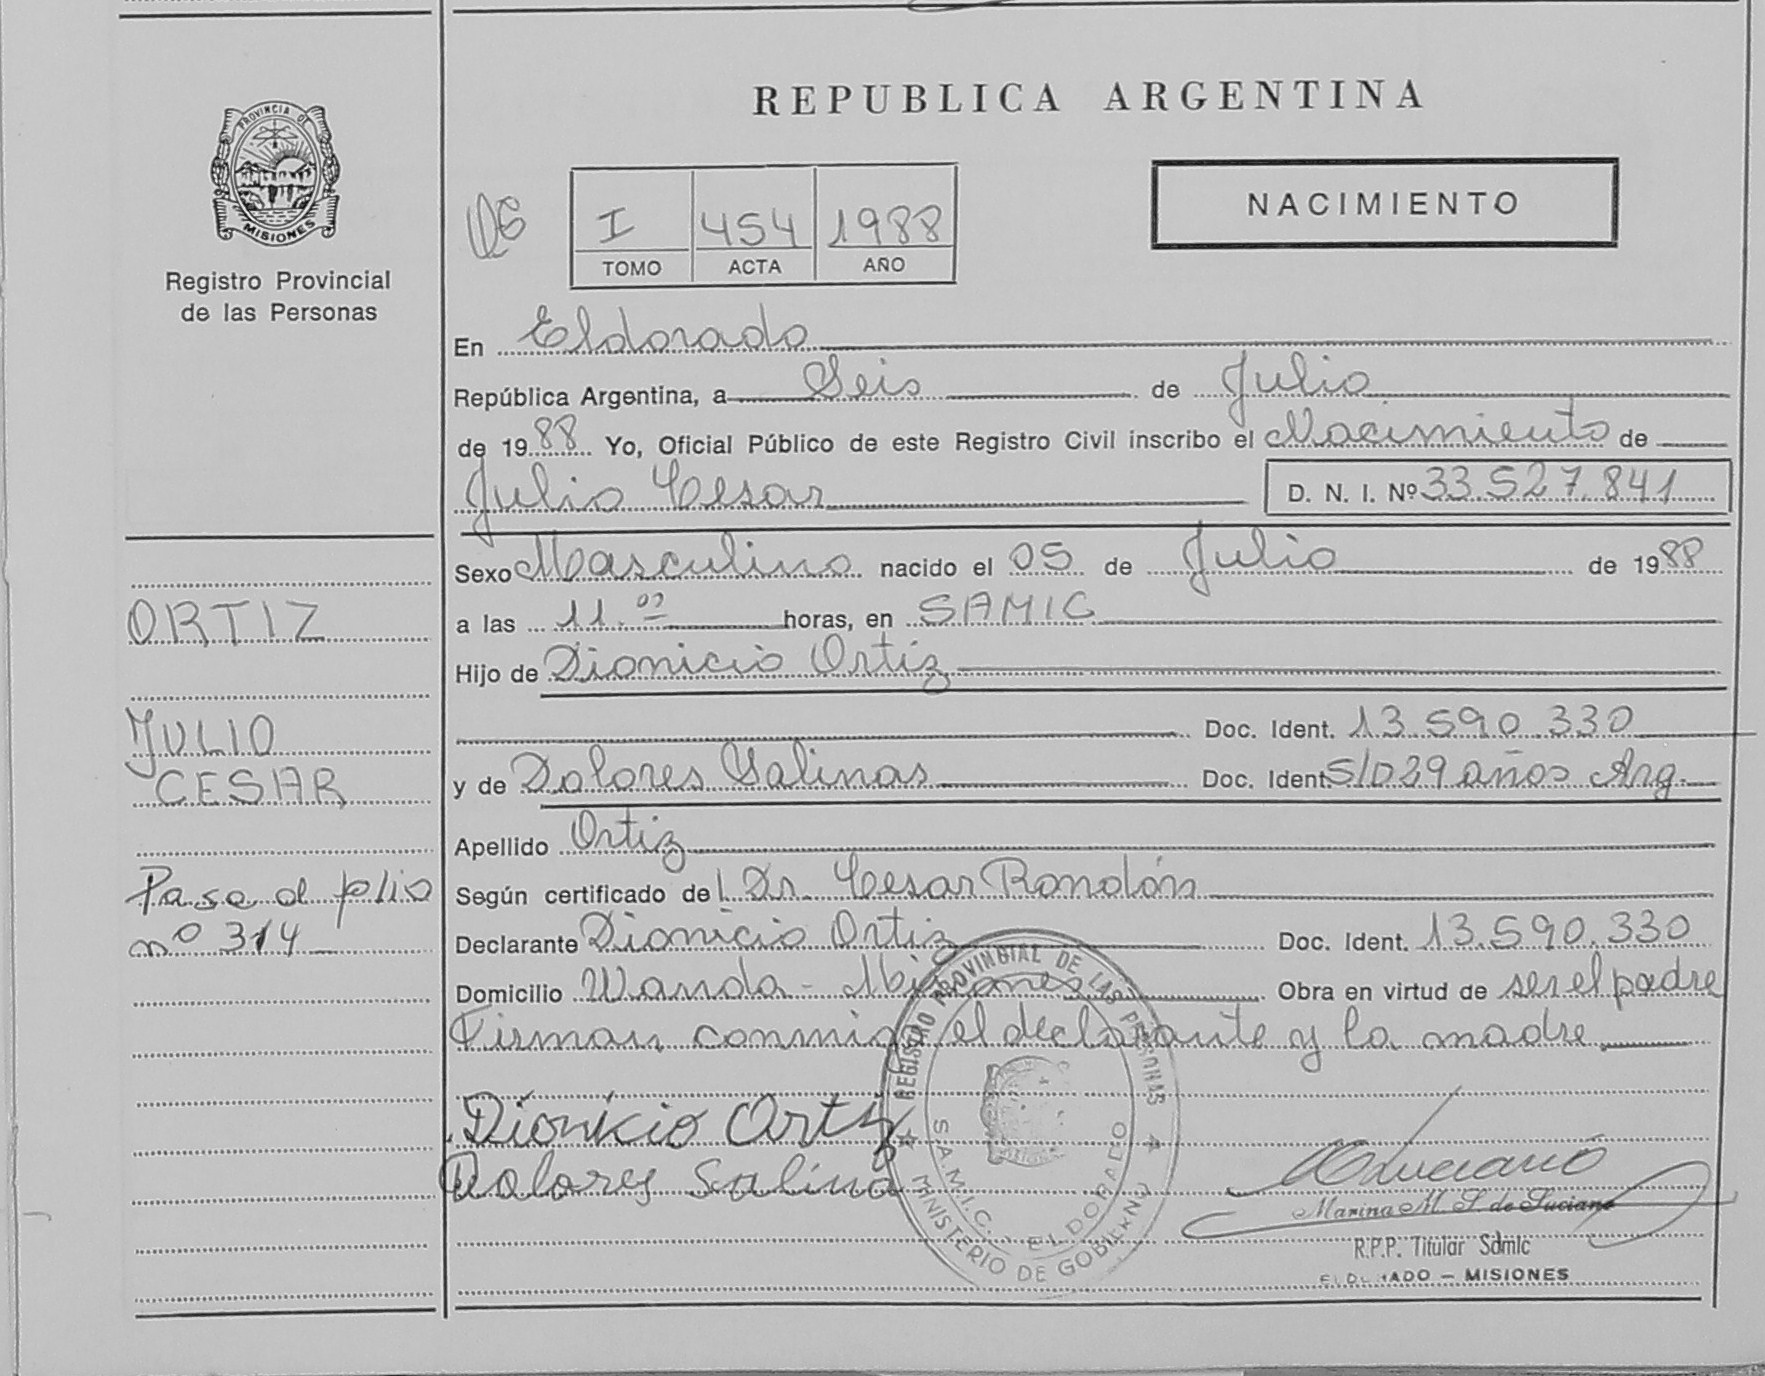 REPUBLICA ARGENTINA
PROVINCIA DE
MISIONES
Registro Provincial
de las Personas
I 454 1988
TOMO ACTA AÑO
NACIMIENTO
En Eldorado
República Argentina, a Seis de Julio
de 1988 Yo, Oficial Público de este Registro Civil inscribo el Nacimiento de
Julio Cesar D. N. I. Nº 33.527.841
Sexo Masculino nacido el 05 de Julio de 1988
a las 11.00 horas, en SAMIC
Hijo de Dionicio Ortiz
Doc. Ident. 13.590.330
y de Dolores Salinas Doc. Ident. S/D 29 años Arg.
Apellido Ortiz
Según certificado del Dr. Cesar Rondón
Declarante Dionicio Ortiz Doc. Ident. 13.590.330
Domicilio Wanda - Misiones Obra en virtud de ser el padre
Firman conmigo el declarante y la madre
Dionicio Ortiz
Dolores Salina
ORTIZ
JULIO
CESAR
Pasa al folio
nº 314
REGISTRO PROVINCIAL DE LAS PERSONAS
S.A.M.I.C. ELDORADO
MINISTERIO DE GOBIERNO
Marina M. S. de Luciano
R.P.P. Titular Samic
ELDORADO – MISIONES